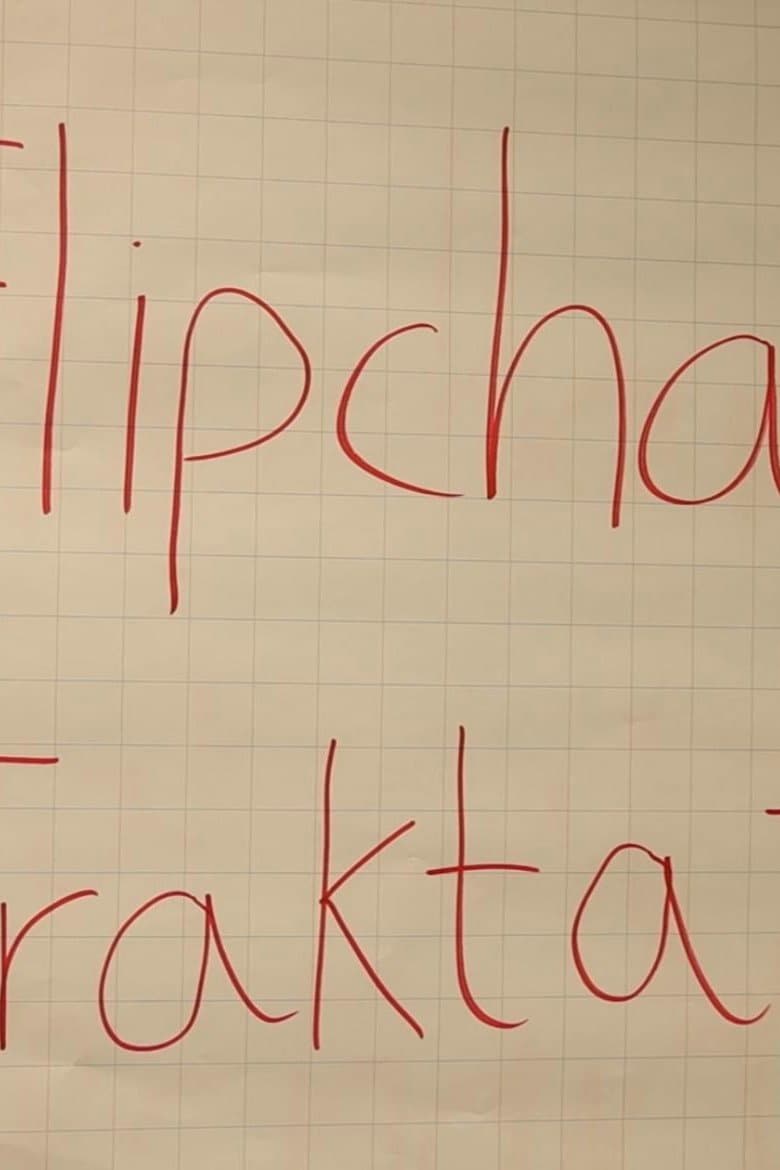 lipcha
rakta